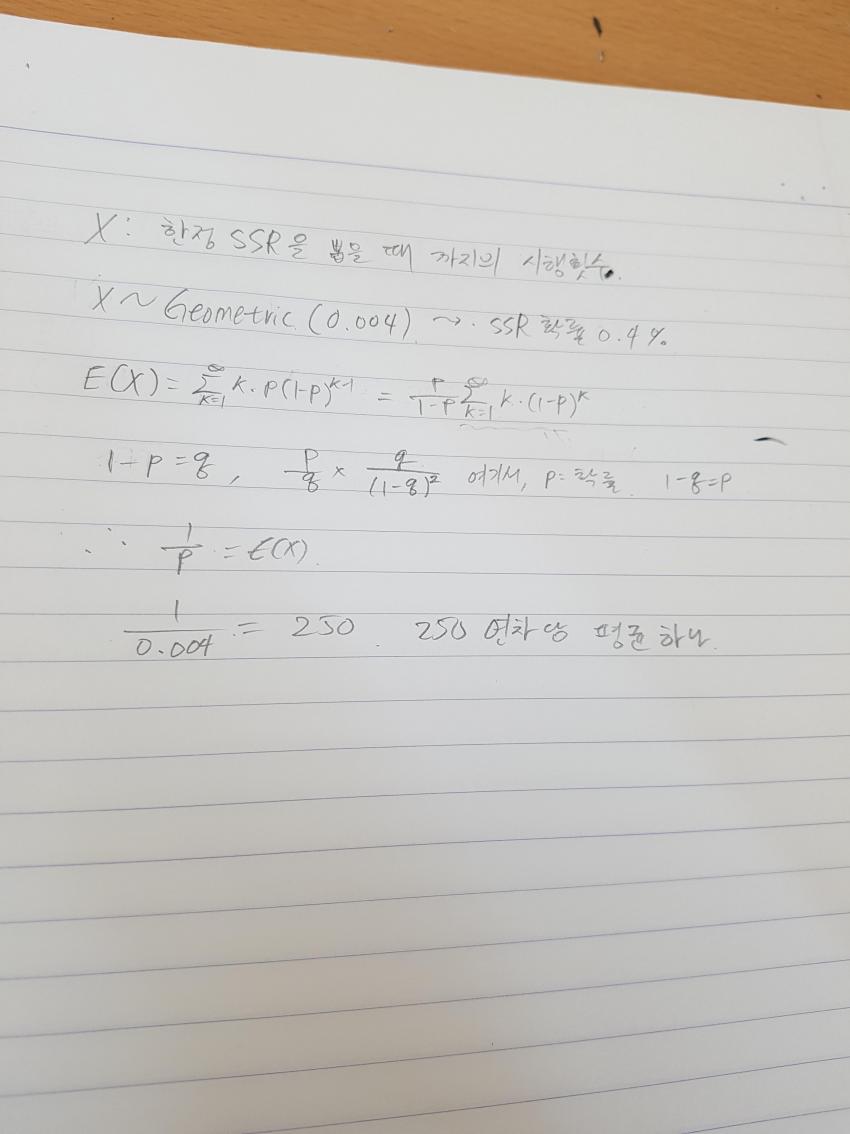 X: 한정 SSR을 뽑을 때 까지의 시행횟수.
X ~ Geometric (0.004) ~> SSR 확률 0.4%
E(X) = ∑_{k=1}^{∞} k·p(1-p)^{k-1} = \frac{p}{1-p} ∑_{k=1}^{∞} k·(1-p)^k
1-p = q, \frac{p}{q} × \frac{q}{(1-q)^2} 여기서, p= 확률 1-q=p
∴ \frac{1}{p} = E(X)
\frac{1}{0.004} = 250. 250 연차당 평균 하나.